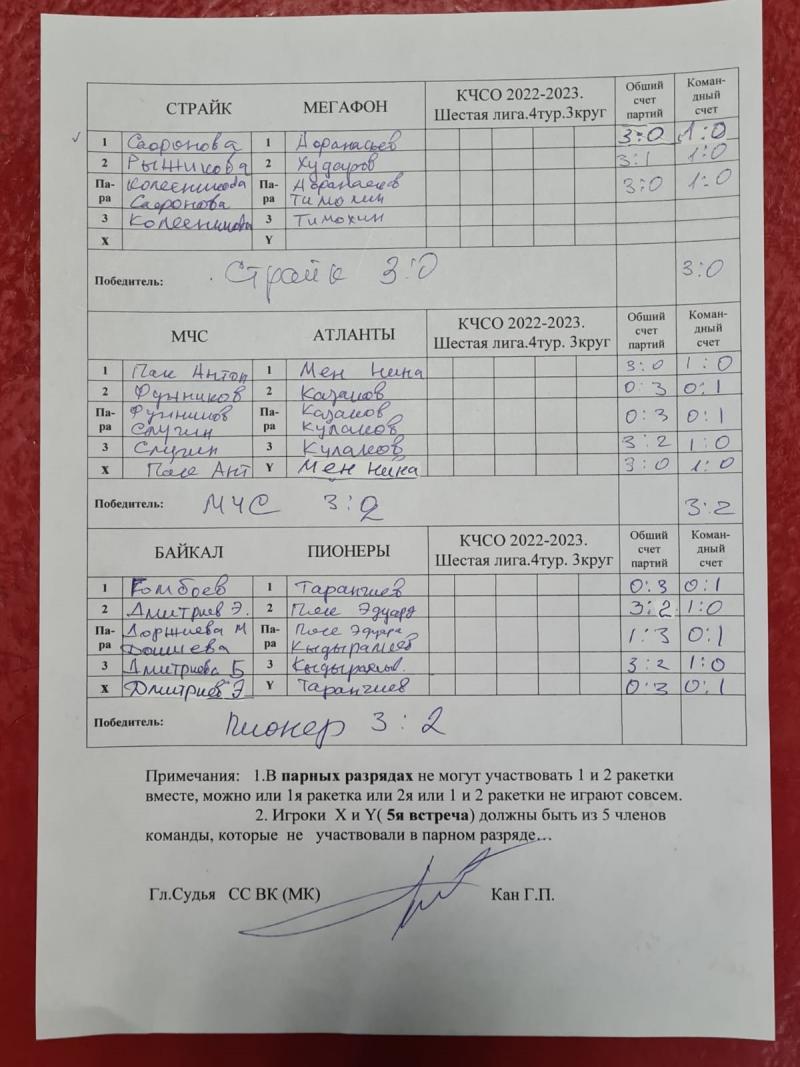 СТРАЙК МЕГАФОН КЧСО 2022-2023. Шестая лига.4тур.3круг Общий счет партий Коман-дный счет
1 Сафронова 1 Афанасьев 3:0 1:0
2 Рыжикова 2 3:1 1:0
Па-ра Колесникова Па-ра 3:0 1:0
Сафронова Тимохин
3 Колесникова 3 Тимохин
X Y
Победитель: Страйк 3:0 3:0
МЧС АТЛАНТЫ КЧСО 2022-2023. Шестая лига.4тур. 3круг Общий счет партий Коман-дный счет
1 Пак Антон 1 Мен Нина 3:0 1:0
2 2 Казаков 0:3 0:1
Па-ра Па-ра Казаков 0:3 0:1
Слугин Кулаков
3 Слугин 3 Кулаков 3:2 1:0
X Пак Ант Y Мен Нина 3:0 1:0
Победитель: МЧС 3:2 3:2
БАЙКАЛ ПИОНЕРЫ КЧСО 2022-2023. Шестая лига.4тур.3круг Общий счет партий Коман-дный счет
1 Гомбоев 1 0:3 0:1
2 Дмитриев Э. 2 Пак Эдуард 3:2 1:0
Па-ра Доржиева М Па-ра Пак Эдуард 1:3 0:1
Дашиева
3 Дмитриева Б 3 3:2 1:0
X Дмитриев Э Y 0:3 0:1
Победитель: Пионер 3:2
Примечания: 1.В парных разрядах не могут участвовать 1 и 2 ракетки
вместе, можно или 1я ракетка или 2я или 1 и 2 ракетки не играют совсем.
2. Игроки X и Y( 5я встреча) должны быть из 5 членов
команды, которые не участвовали в парном разряде…
Гл.Судья СС ВК (МК) Кан Г.П.